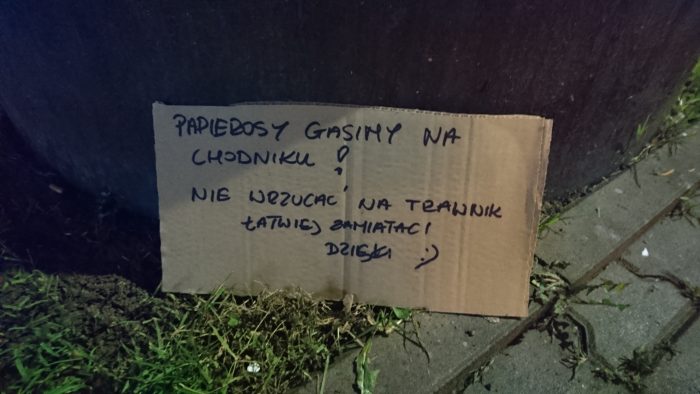 PAPIEROSY GASIMY NA
CHODNIKU!
NIE WRZUCAĆ NA TRAWNIK
ŁATWIEJ ZAMIATAĆ!
DZIĘKI :)